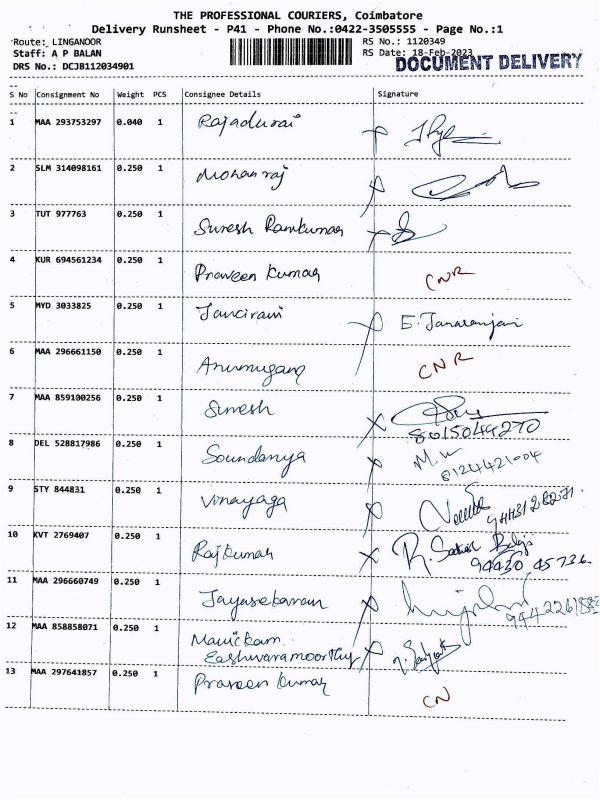 THE PROFESSIONAL COURIERS, Coimbatore
Delivery Runsheet - P41 - Phone No.:0422-3505555 - Page No.:1
Route: LINGANOOR RS No.: 1120349
Staff: A P BALAN RS Date: 18-Feb-2023
DRS No.: DCJB112034901 DOCUMENT DELIVERY
S No Consignment No Weight PCS Consignee Details Signature
1 MAA 293753297 0.040 1 Rajadurai
2 SLM 314098161 0.250 1 Mohanraj
3 TUT 977763 0.250 1 Suresh Ramkumar
4 KUR 694561234 0.250 1 Praveen Kumar CNR
5 MYD 3033825 0.250 1 Jancirani E. Janaranjani
6 MAA 296661150 0.250 1 Arumugam CNR
7 MAA 859100256 0.250 1 Suresh
8015044270
8 DEL 528817986 0.250 1 Soundanya
8124421004
9 STY 844831 0.250 1 Vinayaga
10 KVT 2769407 0.250 1 Rajkumar
94430 45736
11 MAA 296660749 0.250 1 Jayasekaran
12 MAA 858858071 0.250 1 Manickam
Eashwaramoorthy
13 MAA 297641857 0.250 1 Praveen Kumar CN